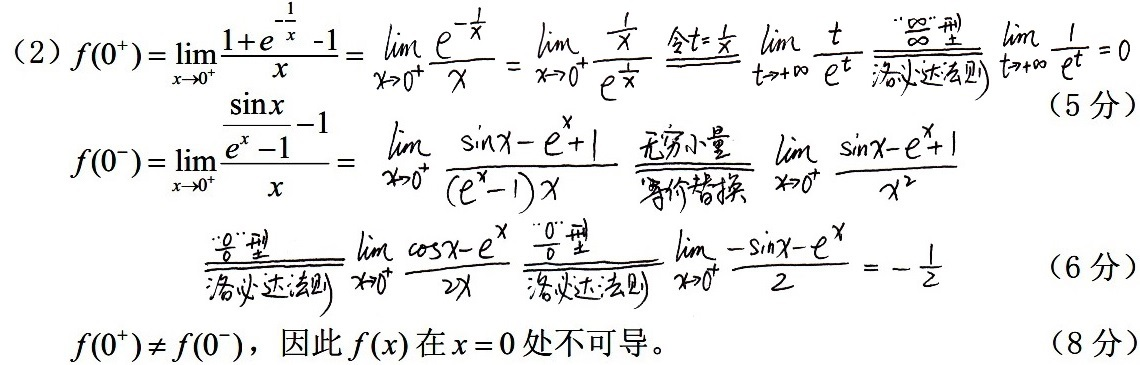 （2）f(0⁺) = lim_{x→0⁺} (1+e^{-1/x} -1)/x = lim_{x→0⁺} e^{-1/x}/x = lim_{x→0⁺} (1/x)/e^{1/x} 令t=1/x lim_{t→+∞} t/e^t "∞/∞"型 洛必达法则 lim_{t→+∞} 1/e^t = 0
（5 分）
f(0⁻) = lim_{x→0⁺} (sin x/(e^x -1) -1)/x = lim_{x→0⁺} (sinx-e^x+1)/((e^x-1)x) 无穷小量 等价替换 lim_{x→0⁺} (sinx-e^x+1)/x²
"0/0"型 洛必达法则 lim_{x→0⁺} (cosx-e^x)/2x "0/0"型 洛必达法则 lim_{x→0⁺} (-sinx-e^x)/2 = -1/2 （6 分）
f(0⁺) ≠ f(0⁻)，因此 f(x) 在 x = 0 处不可导。 （8 分）